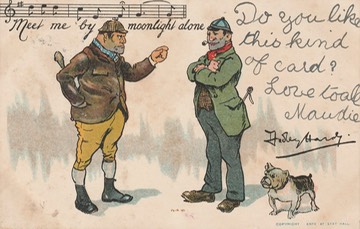 Meet me by moonlight alone
Do you like
this kind
of card?
Love to all
Maudie
Dudley Hardy